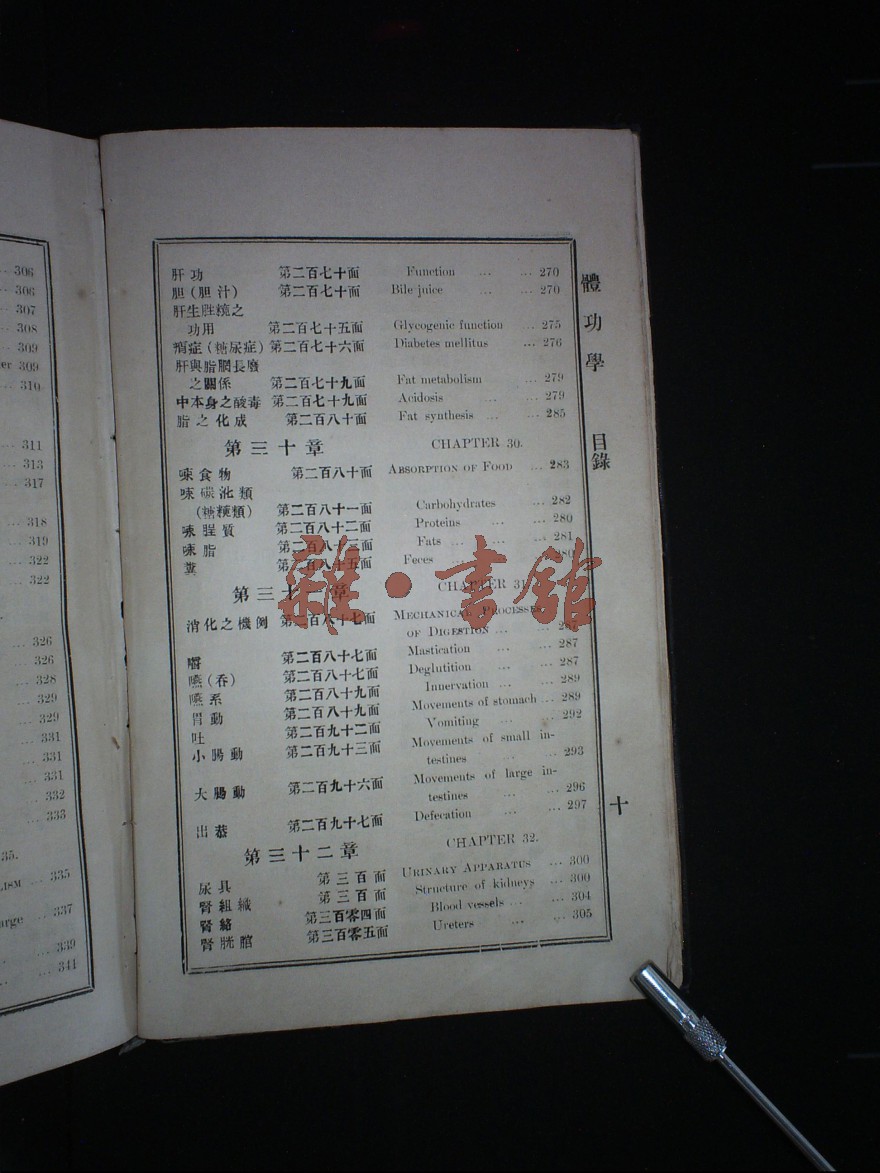 306
306
307
308
309
er 309
310
311
313
317
318
319
322
322
326
326
328
329
329
331
331
331
332
333
35.
LISM ... 335
arge ... 337
339
341
體功學 目錄
十
肝功 第二百七十面 Function ... ... 270
胆(胆汁) 第二百七十面 Bile juice ... ... 270
功用 第二百七十五面 Glycogenic function ... 275
(糖尿症) 第二百七十六面 Diabetes mellitus ... 276
之關係 第二百七十九面 Fat metabolism ... 279
中本身之酸毒 第二百七十九面 Acidosis ... ... 279
脂之化成 第二百八十面 Fat synthesis ... ... 285
第三十章 CHAPTER 30.
食物 第二百八十面 ABSORPTION OF FOOD ... 283
類
第二百八十一面 Carbohydrates ... 282
質 第二百八十二面 Proteins ... ... 280
脂 第二百八十三面 Fats ... ... ... 281
糞 第二百八十五面 Feces ... 280
第三十 章 CHAPTER 31.
消化之機 第二百八十七面 MECHANICAL PROCESSES
OF DIGESTION ... ...
嚼 第二百八十七面 Mastication ... ... 287
嚥(吞) 第二百八十七面 Deglutition ... ... 287
嚥系 第二百八十九面 Innervation ... ... 289
胃動 第二百八十九面 Movements of stomach ... 289
吐 第二百九十二面 Vomiting ... ... 292
小腸動 第二百九十三面 Movements of small in-
testines ... ... 293
大腸動 第二百九十六面 Movements of large in-
testines ... ... 296
出恭 第二百九十七面 Defecation ... ... 297
第三十二章 CHAPTER 32.
尿具 第三百面 URINARY APPARATUS ... 300
腎組織 第三百面 Structure of kidneys ... 300
腎絡 第三百零四面 Blood vessels ... ... 304
腎胱 第三百零五面 Ureters ... ... 305
雜·書館